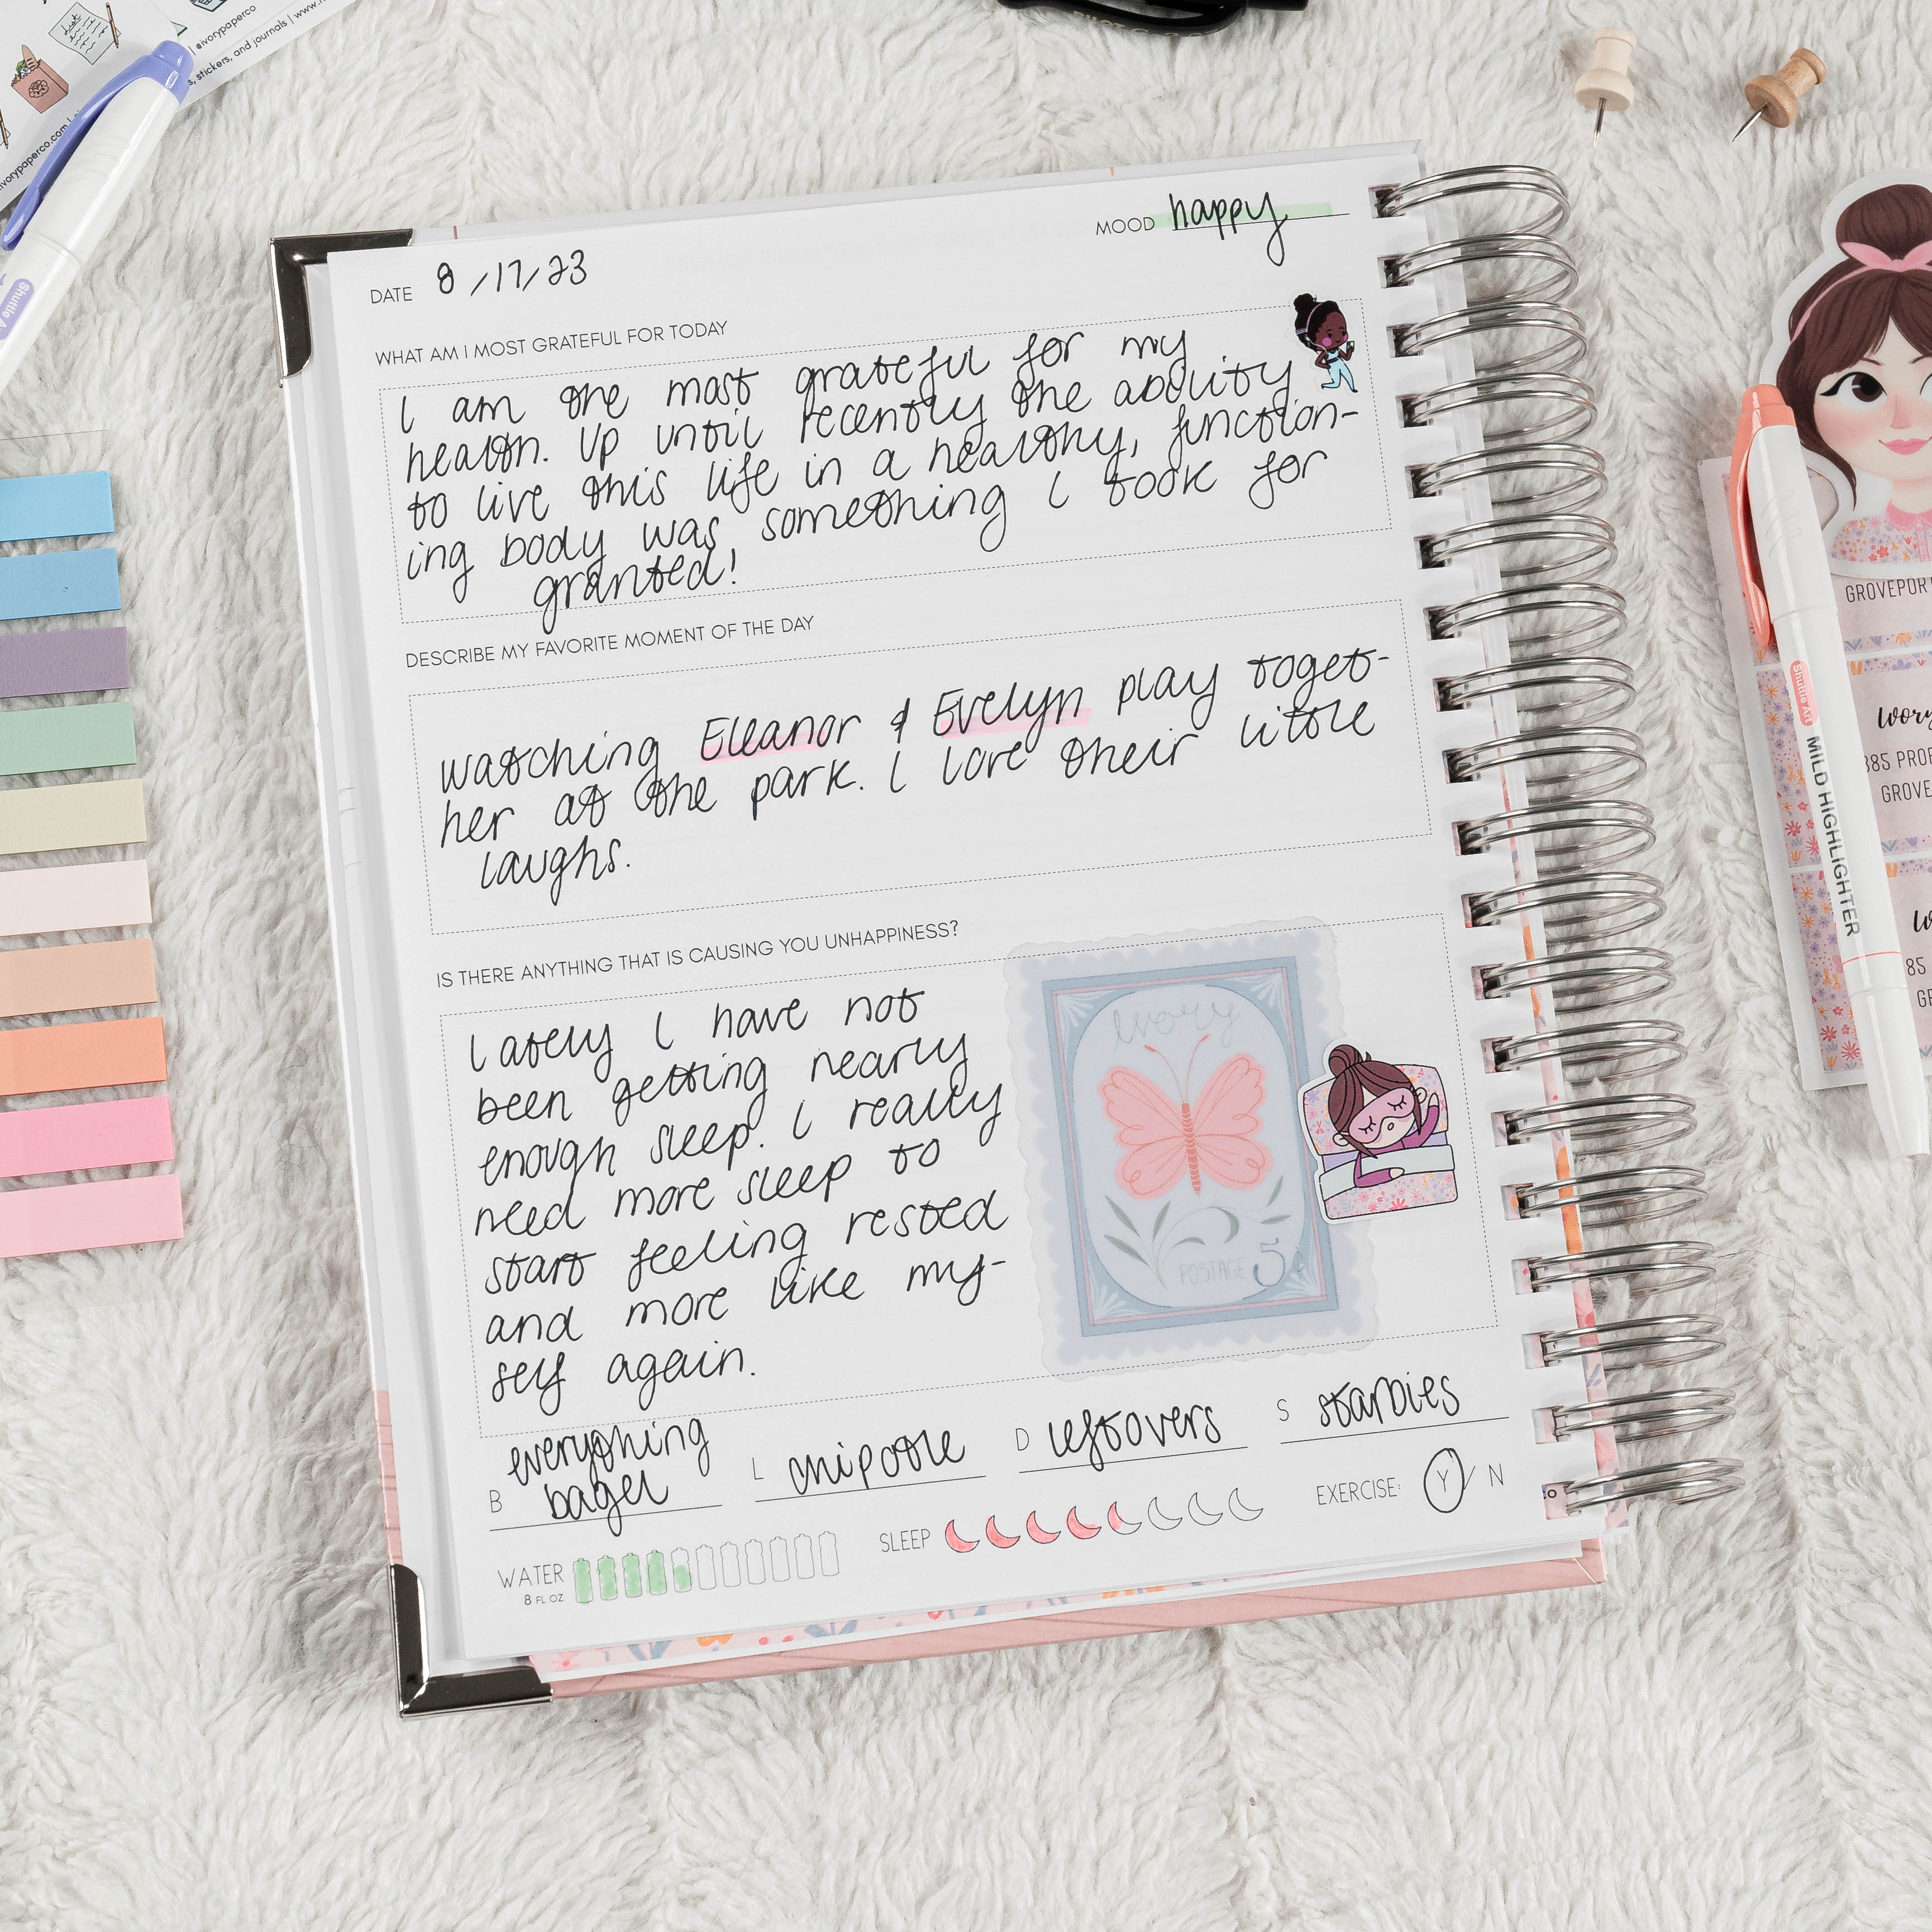 ivorypaperco
s, stickers, and journals | www.
ivorypaperco.com |
Shuttle A
MOOD happy
DATE 8/17/23
WHAT AM I MOST GRATEFUL FOR TODAY
I am the most grateful for my
health. Up until recently the ability
to live this life in a healthy, function-
ing body was something I took for
granted!
DESCRIBE MY FAVORITE MOMENT OF THE DAY
watching Eleanor & Evelyn play toget-
her at the park. I love their little
laughs.
IS THERE ANYTHING THAT IS CAUSING YOU UNHAPPINESS?
Lately I have not
been getting nearly
enough sleep. I really
need more sleep to
start feeling rested
and more like my-
self again.
Ivory
POSTAGE 5¢
B everything
bagel
L chipotle
D leftovers
S starbies
WATER
8 FL OZ
SLEEP
EXERCISE: Y / N
GROVEPOR
Ivory
385 PROF
GROVE
85
Shuttle Art
MILD HIGHLIGHTER